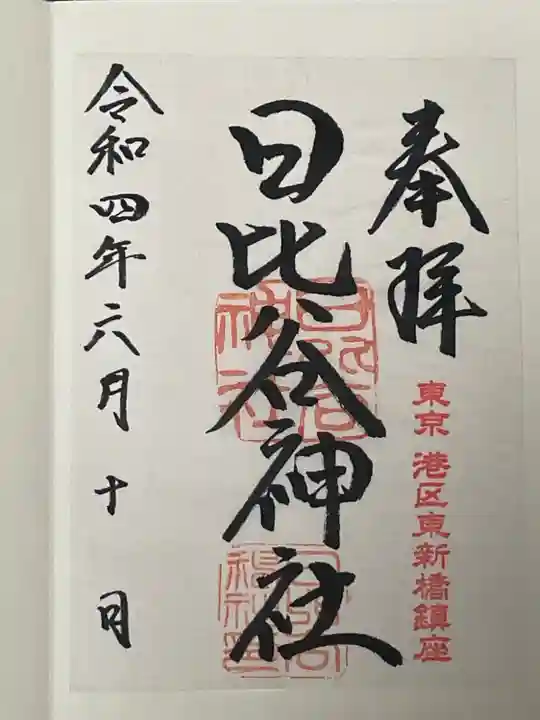 奉拝
東京 港区東新橋鎮座
日比谷神社
日比谷神社
令和四年六月十日